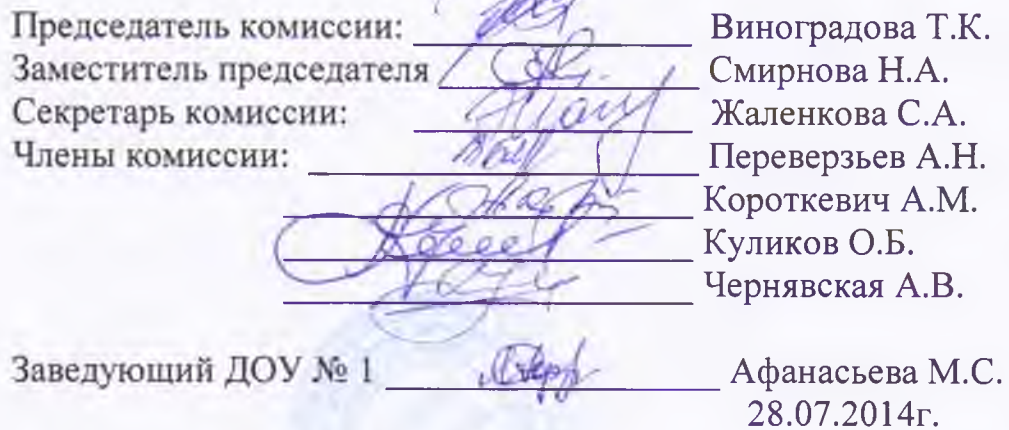 Председатель комиссии: Виноградова Т.К.
Заместитель председателя Смирнова Н.А.
Секретарь комиссии: Жаленкова С.А.
Члены комиссии: Переверзьев А.Н.
Короткевич А.М.
Куликов О.Б.
Чернявская А.В.
Заведующий ДОУ № 1 Афанасьева М.С.
28.07.2014г.